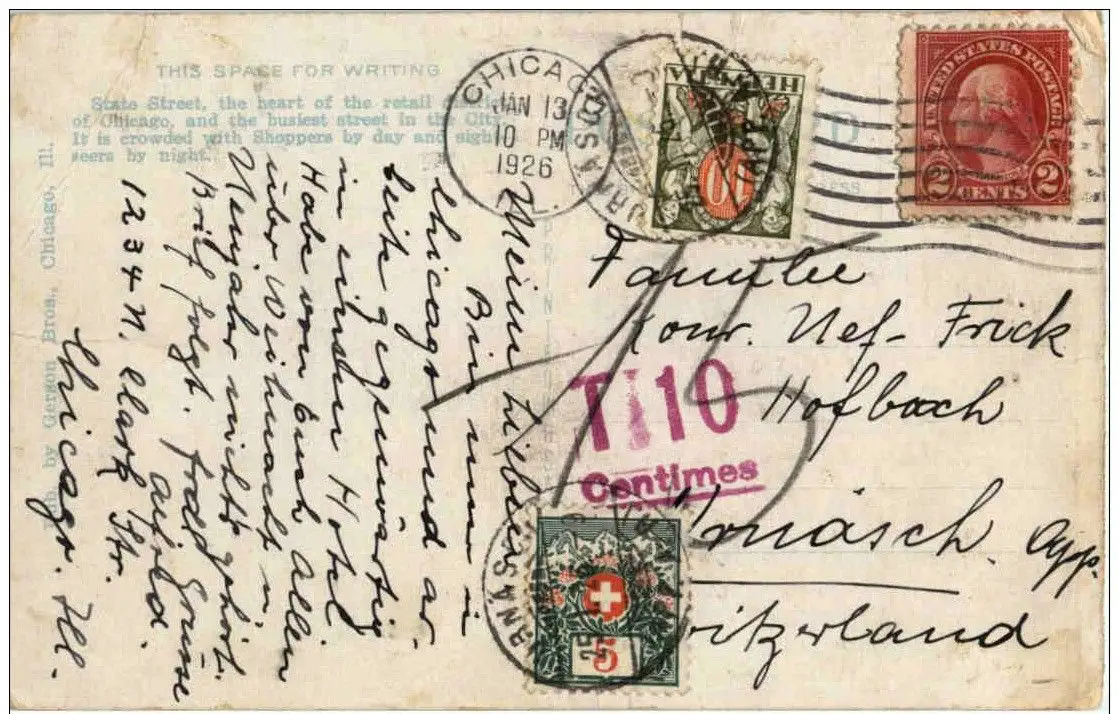 THIS SPACE FOR WRITING
State Street, the heart of the retail
of Chicago, and the busiest street in the City.
It is crowded with Shoppers by day and sight
seers by night.
Pub. by Gerson Bros., Chicago, Ill.
CHICAGO
JAN 13
10 PM
1926
HELVETIA
10
UNITED STATES POSTAGE
2 CENTS 2
Familie
Conr. Nef-Frick
Hofbach
Urnäsch. App.
Switzerland
T 10
Centimes
15
URNÄSCH
5
25
Meine Lieben
Bin nun in
Chicago und ar
beite gegenwärtig
in einem Hotel
Habe von Euch allen
über Weihnacht u
Neujahr nichts gehört.
Brief folgt. Grüsse
Arnold
1234 N. Clark Str.
Chicago. Ill.